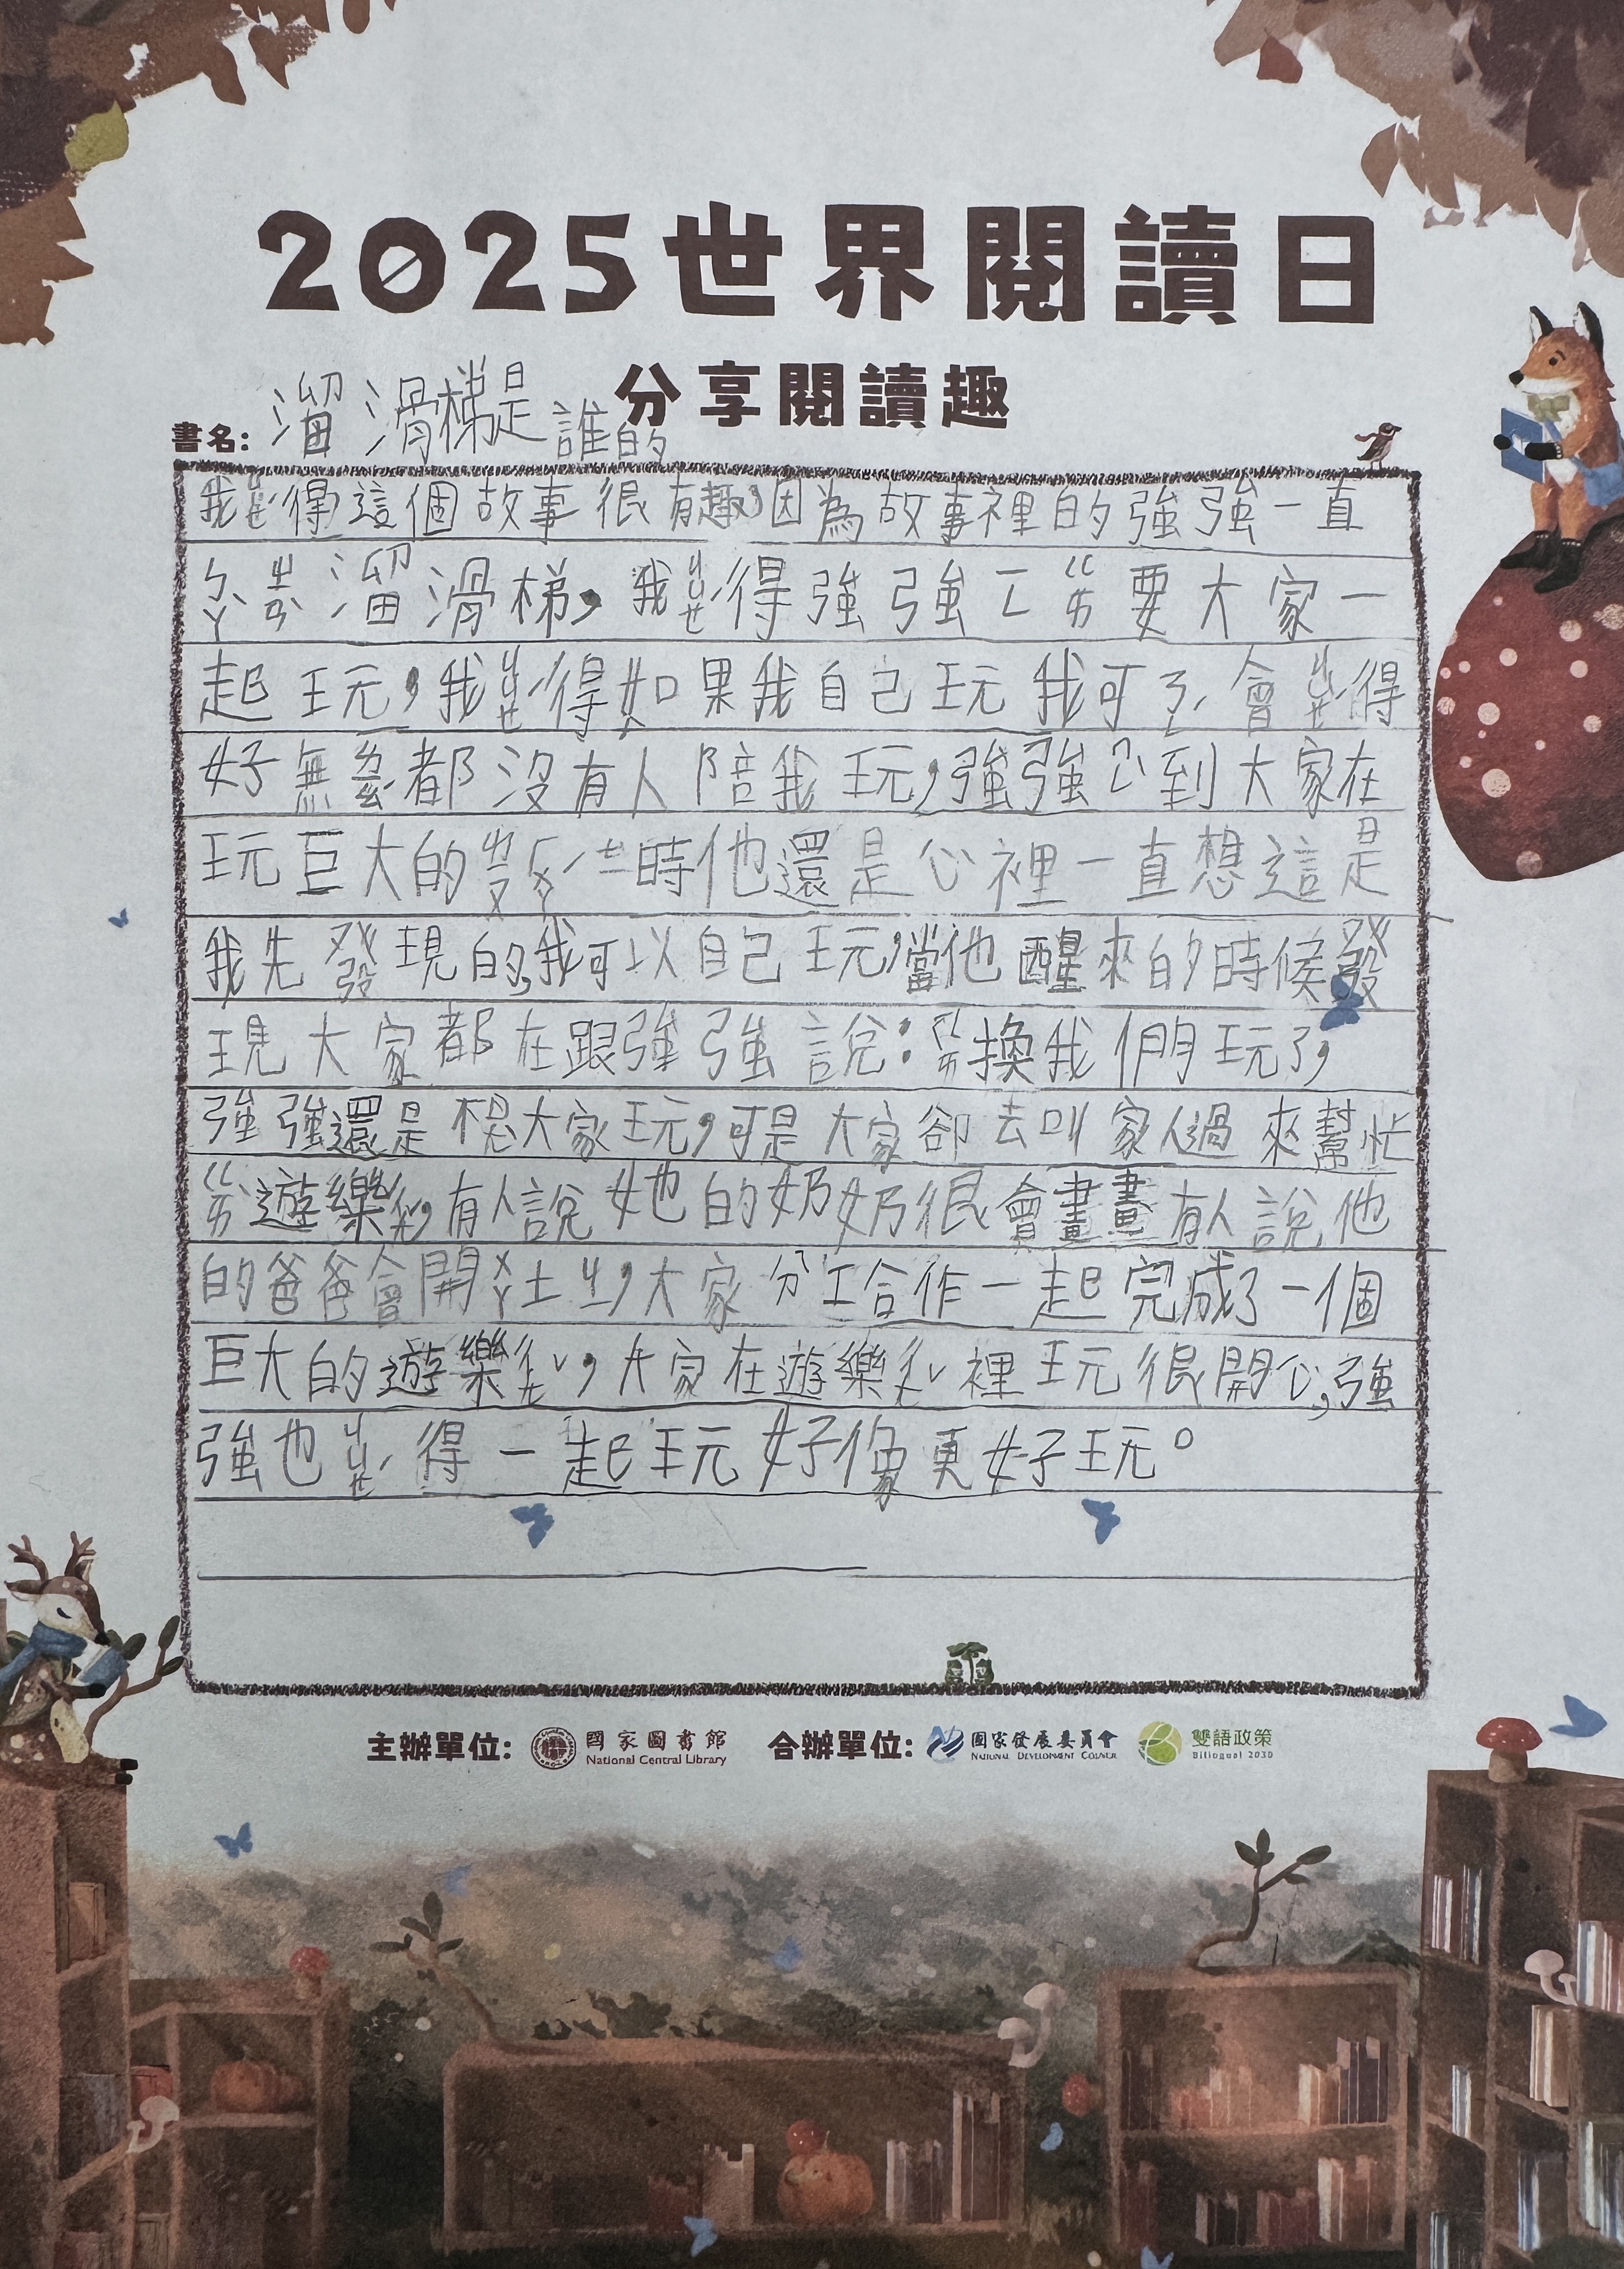 2025世界閱讀日
分享閱讀趣
書名: 溜滑梯是誰的
我ㄐㄩㄝˊ得這個故事很有趣，因為故事裡的強強一直
ㄅㄚˋ ㄓㄢˋ 溜滑梯，我ㄐㄩㄝˊ得強強ㄧㄥ ㄍㄞ 要大家一
起玩，我ㄐㄩㄝˊ得如果我自己玩我可ㄋㄥˊ會ㄐㄩㄝˊ得
好無ㄌㄧㄠˊ都沒有人陪我玩，強強心到大家在
玩巨大的 時他還是心裡一直想這是
我先發現的，我可以自己玩，當他醒來的時候發
現大家都在跟強強說：ㄍㄞ換我們玩了，
強強還是不想大家玩，可是大家卻去叫家人過來幫忙
ㄍㄞ遊樂ㄔㄤˇ，有人說她的奶奶很會畫畫有人說他
的爸爸會開ㄨㄚ土ㄐㄧ，大家分工合作一起完成了一個
巨大的遊樂ㄔㄤˇ，大家在遊樂ㄔㄤˇ裡玩很開心，強
強也ㄐㄩㄝˊ得一起玩好像更好玩。
主辦單位: 國家圖書館 National Central Library 合辦單位: 國家發展委員會 NATIONAL DEVELOPMENT COUNCIL 雙語政策 Bilingual 2030